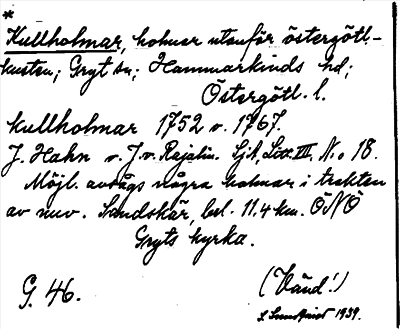 *
Kullholmar, holmar utanför östergötl.-
kusten; Gryt sn; Hammarkinds hd;
Östergötl. l.
Kullholmar 1752 v. 1767.
J. Hahn v. J. v. Rajalin. Sjk, Sect. VII, N:o 18.
Möjl. avsågs några holmar i trakten
av nuv. Sandskär, bel. 11,4 km. ÖNÖ
Gryts kyrka.
G. 46.
(Vänd!)
S. Sundqvist 1939.